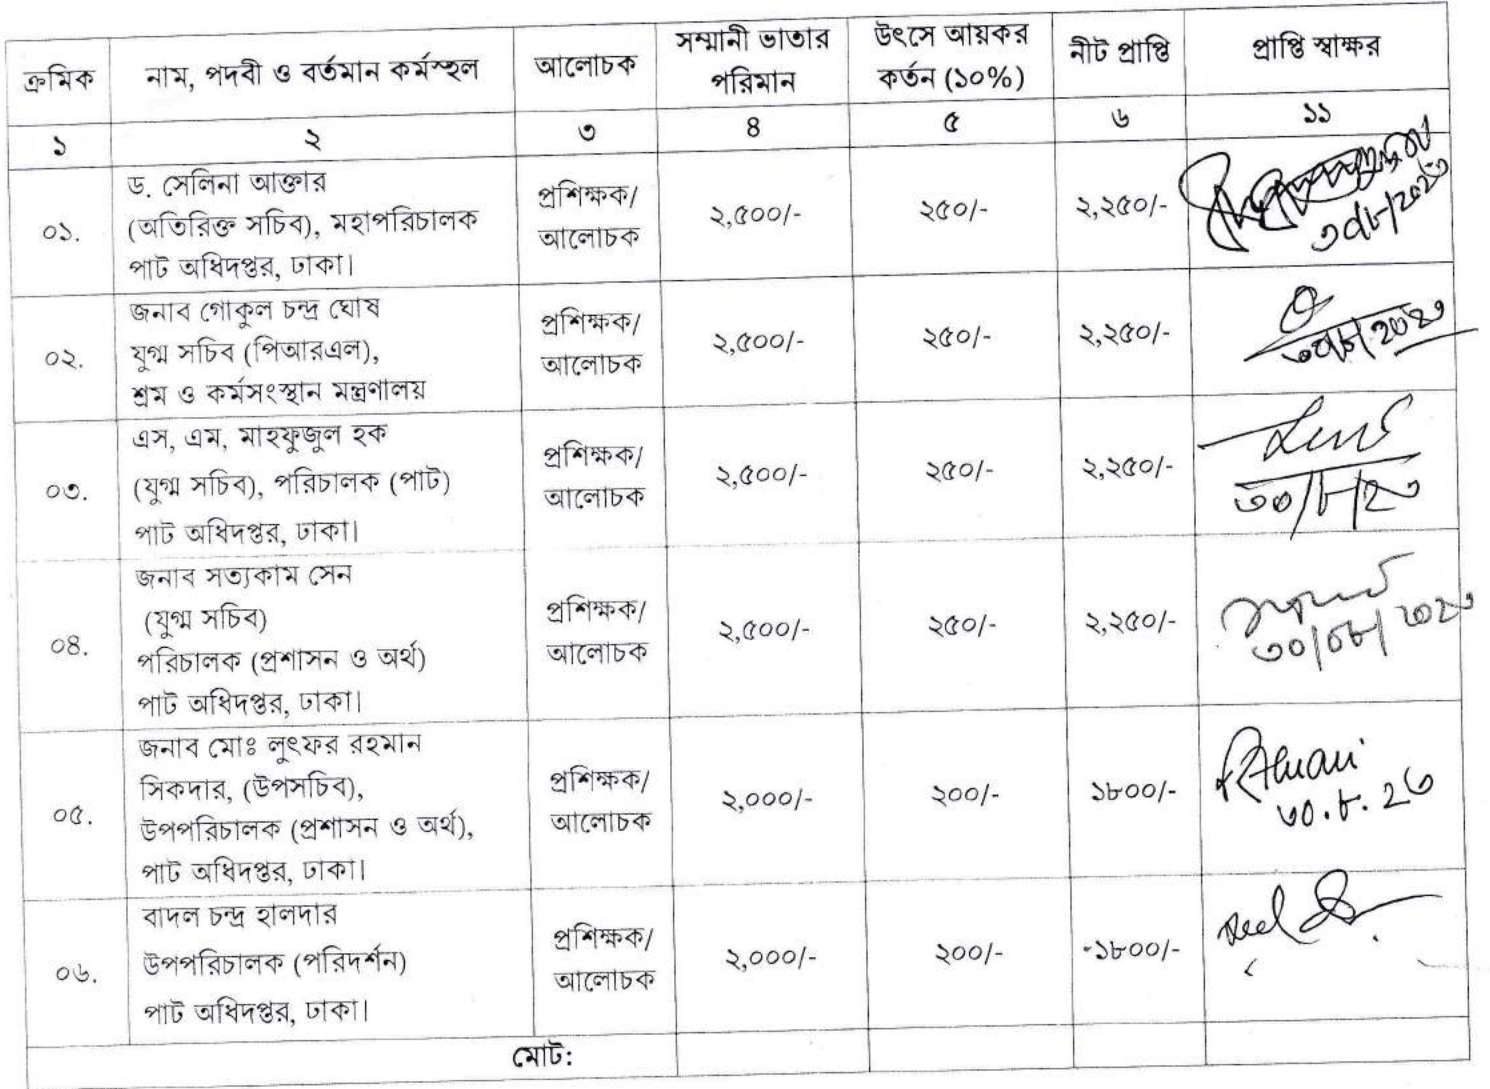 ক্রমিক নাম, পদবী ও বর্তমান কর্মস্হল আলোচক সম্মানী ভাতার পরিমান উৎসে আয়কর কর্তন (১০%) নীট প্রাপ্তি প্রাপ্তি স্বাক্ষর
১ ২ ৩ ৪ ৫ ৬ ১১
ড. সেলিনা আক্তার
(অতিরিক্ত সচিব), মহাপরিচালক
পাট অধিদপ্তর, ঢাকা।
০১. প্রশিক্ষক/ আলোচক ২,৫০০/- ২৫০/- ২,২৫০/-
জনাব গোকুল চন্দ্র ঘোষ
যুগ্ম সচিব (পিআরএল),
শ্রম ও কর্মসংস্থান মন্ত্রণালয়
০২. প্রশিক্ষক/ আলোচক ২,৫০০/- ২৫০/- ২,২৫০/-
এস, এম, মাহফুজুল হক
(যুগ্ম সচিব), পরিচালক (পাট)
পাট অধিদপ্তর, ঢাকা।
০৩. প্রশিক্ষক/ আলোচক ২,৫০০/- ২৫০/- ২,২৫০/-
৩০/৮/২৩
জনাব সত্যকাম সেন
(যুগ্ম সচিব)
পরিচালক (প্রশাসন ও অর্থ)
পাট অধিদপ্তর, ঢাকা।
০৪. প্রশিক্ষক/ আলোচক ২,৫০০/- ২৫০/- ২,২৫০/-
জনাব মোঃ লুৎফর রহমান
সিকদার, (উপসচিব),
উপপরিচালক (প্রশাসন ও অর্থ),
পাট অধিদপ্তর, ঢাকা।
০৫. প্রশিক্ষক/ আলোচক ২,০০০/- ২০০/- ১৮০০/-
৩০.৮.২৩
বাদল চন্দ্র হালদার
উপপরিচালক (পরিদর্শন)
পাট অধিদপ্তর, ঢাকা।
০৬. প্রশিক্ষক/ আলোচক ২,০০০/- ২০০/- ১৮০০/-
মোট: